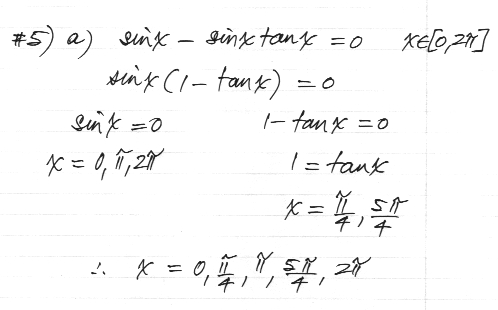 #5) a) sinx - sinx tanx = 0 x∈[0,2π]
sinx(1 - tanx) = 0
sinx = 0 1 - tanx = 0
x = 0, π, 2π 1 = tanx
x = π/4, 5π/4
∴ x = 0, π/4, π, 5π/4, 2π